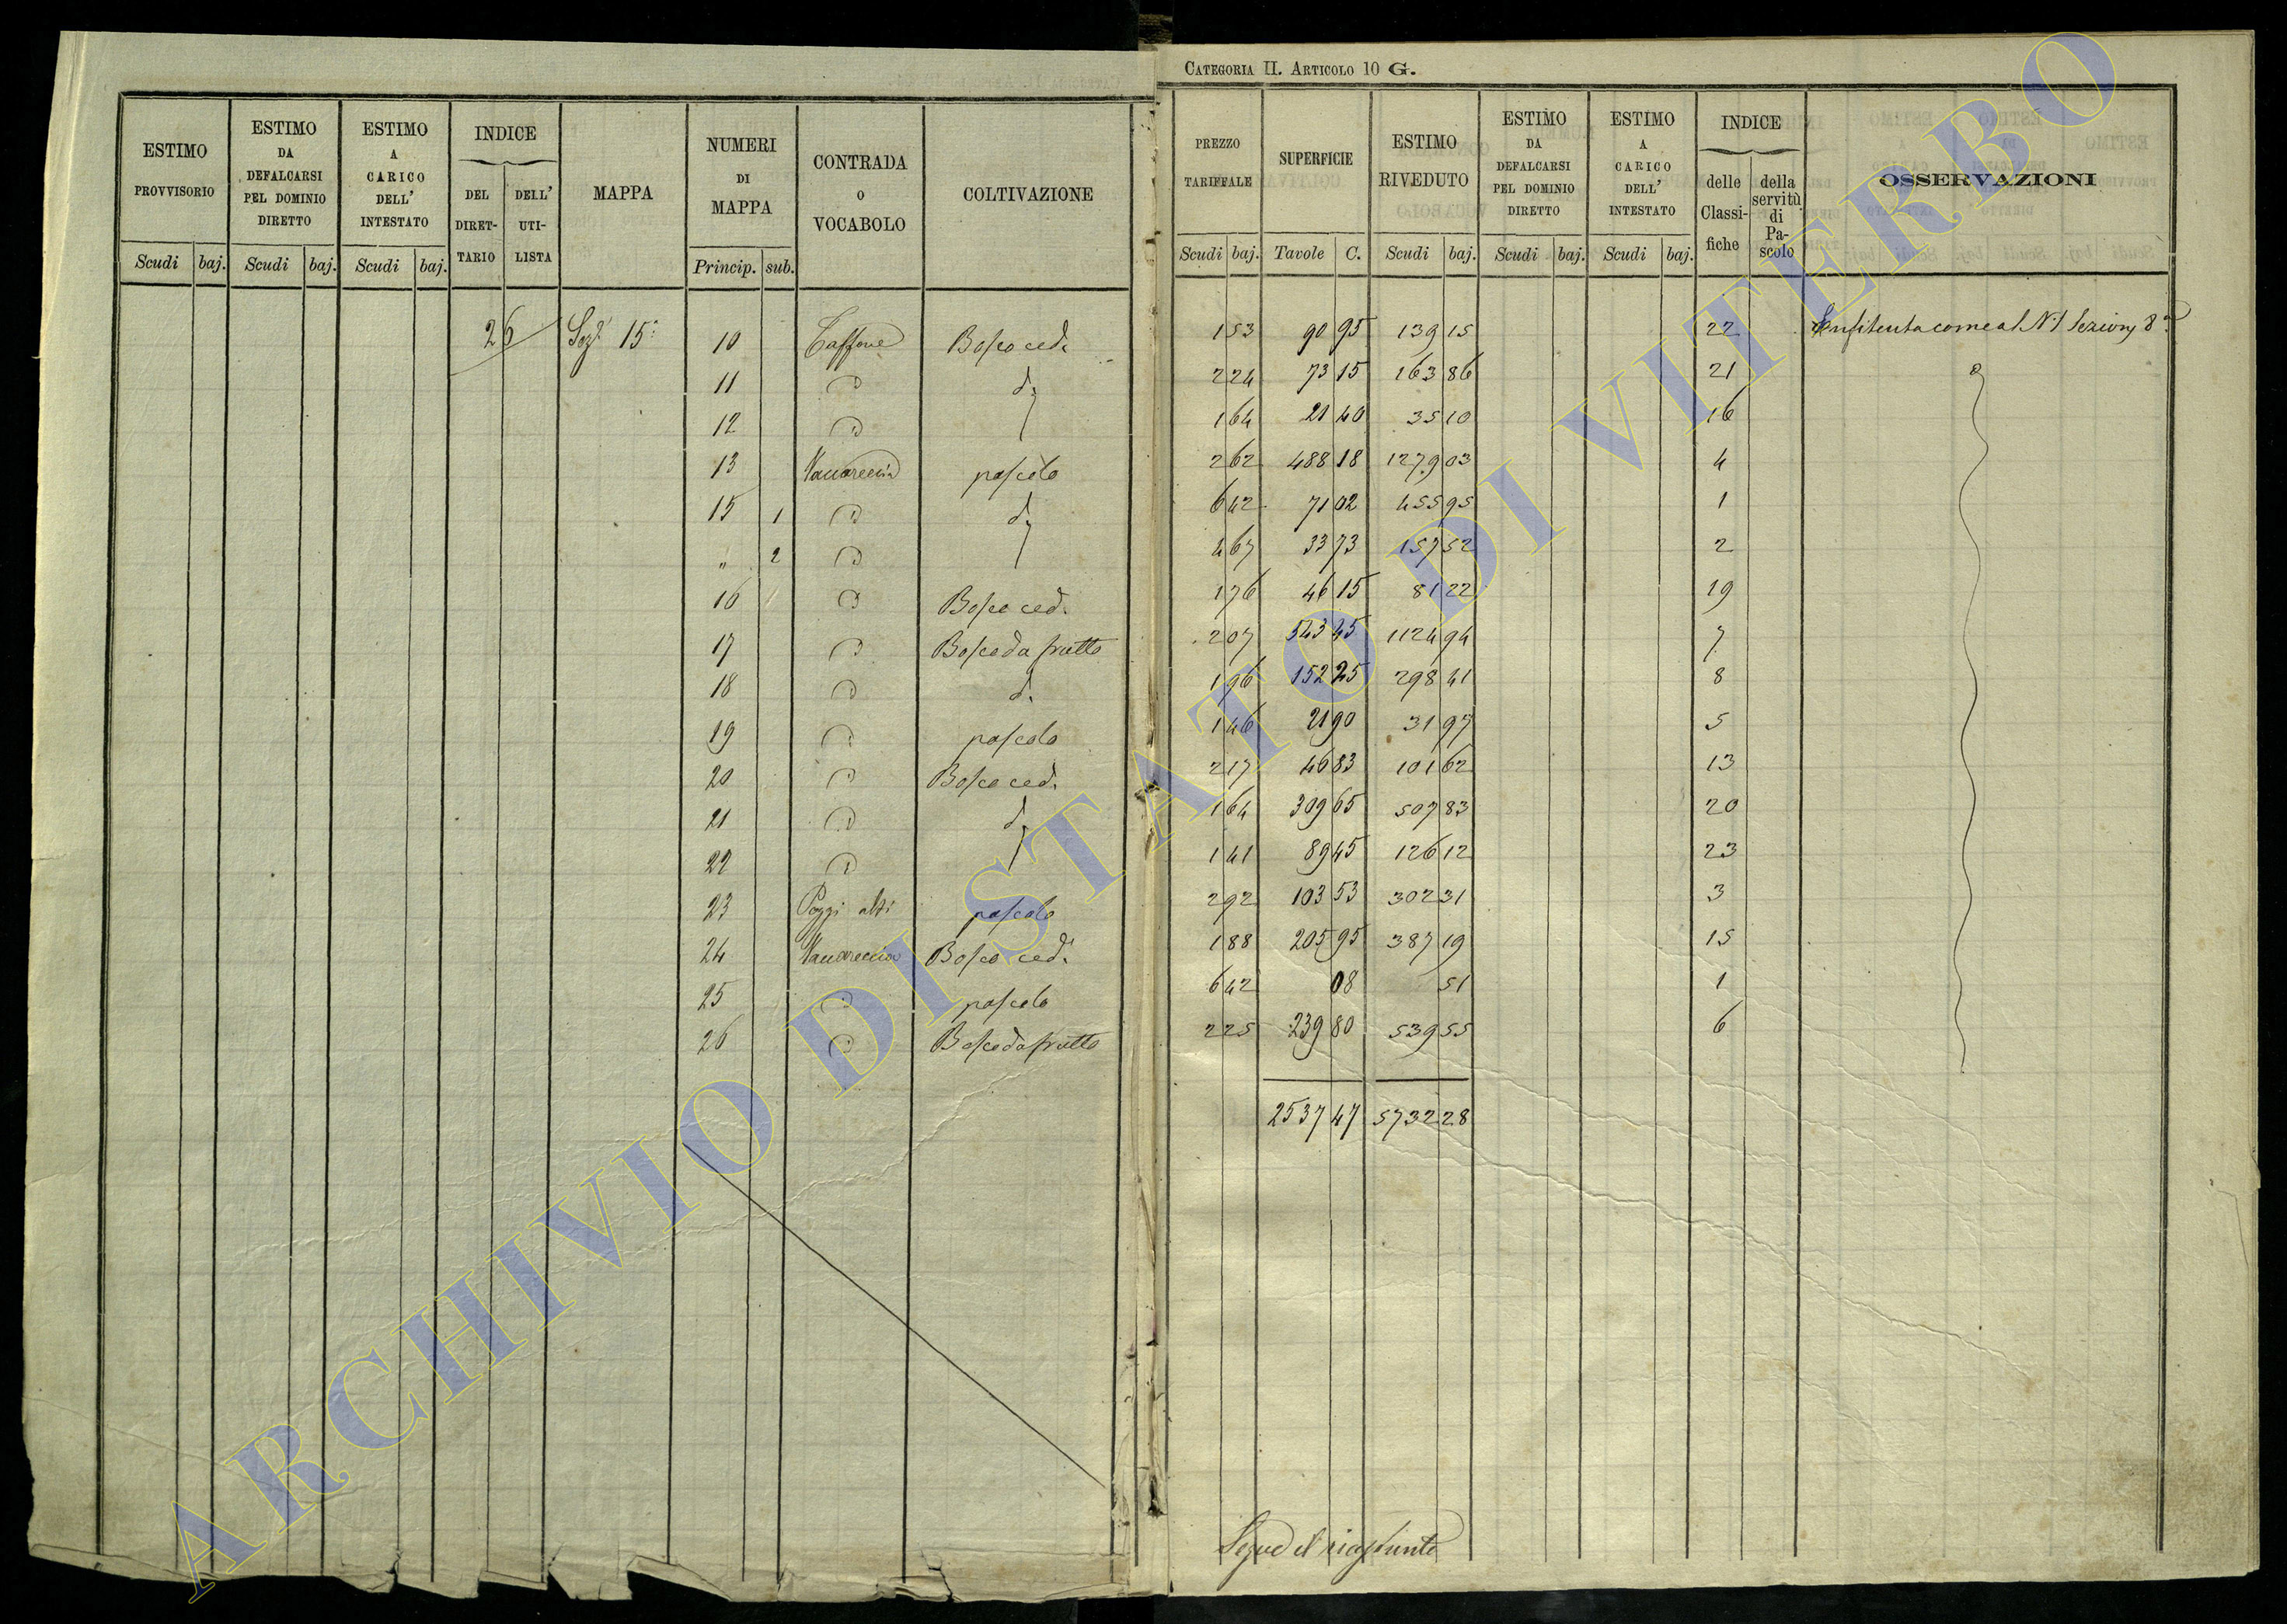 CATEGORIA II. ARTICOLO 10 G.
ESTIMO PROVVISORIO Scudi baj.
ESTIMO DA DEFALCARSI PEL DOMINIO DIRETTO Scudi baj.
ESTIMO A CARICO DELL' INTESTATO Scudi baj.
INDICE DEL DIRET-TARIO DELL' UTI-LISTA
MAPPA
NUMERI DI MAPPA Princip. sub.
CONTRADA O VOCABOLO
COLTIVAZIONE
PREZZO TARIFFALE Scudi baj.
SUPERFICIE Tavole C.
ESTIMO RIVEDUTO Scudi baj.
ESTIMO DA DEFALCARSI PEL DOMINIO DIRETTO Scudi baj.
ESTIMO A CARICO DELL' INTESTATO Scudi baj.
INDICE delle Classi-fiche della servitù di Pa-scolo
OSSERVAZIONI
26 Sezᵉ 15ª 10 Caffone Bosco ced. 1 53 90 95 139 15 22 Enfiteuta come al N. 1 Sezione 8ª
11 " d. 2 24 73 15 163 86 21
12 " d. 1 64 21 40 35 10 16
13 Vaccareccia pascolo 2 62 488 18 1279 03 4
15 1 " d. 6 42 71 02 455 95 1
" 2 " d. 4 67 33 73 157 52 2
16 " Bosco ced. 1 76 46 15 81 22 19
17 " Bosco da frutto 2 07 543 45 1124 94 7
18 " d. 1 96 152 25 298 41 8
19 " pascolo 1 46 21 90 31 97 5
20 " Bosco ced. 2 17 46 83 101 62 13
21 " d. 1 64 309 65 507 83 20
22 " 1 41 89 45 126 12 23
23 Poggi alti pascolo 2 92 103 53 302 31 3
24 Vaccareccia Bosco ced. 1 88 205 95 387 19 15
25 " pascolo 6 42 08 51 1
26 " Bosco da frutto 2 25 239 80 539 55 6
2537 47 5732 28
Segue il riassunto
ARCHIVIO DI STATO DI VITERBO